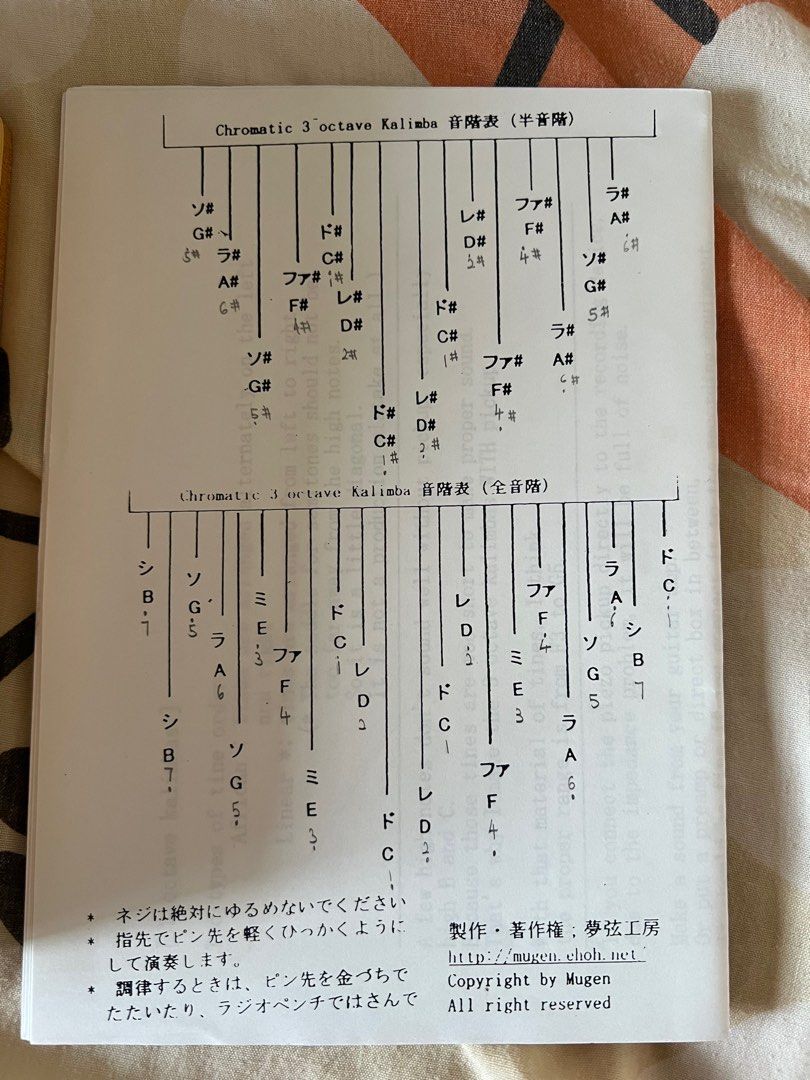 Chromatic 3 octave Kalimba 音階表（半音階）
ソ# ラ# ソ# ファ# ド# レ# ド# レ# ド# レ# ファ# ファ# ラ# ソ# ラ#
G# A# G# F# C# D# C# D# C# D# F# F# A# G# A#
5# 6# 5# 4# 1# 2# 1# 2# 1# 2# 4# 4# 6# 5# 6#
Chromatic 3 octave Kalimba 音階表（全音階）
シ シ ソ ラ ソ ミ ファ ミ ド レ ド レ ド レ ファ ミ ファ ラ ソ ラ シ ド
B B G A G E F E C D C D C D F E F A G A B C
7 7 5 6 5 3 4 3 1 2 1 2 1 2 4 3 4 6 5 6 7 1
* ネジは絶対にゆるめないでください
* 指先でピン先を軽くひっかくように
して演奏します。
* 調律するときは、ピン先を金づちで
たたいたり、ラジオペンチではさんで
製作・著作権；夢弦工房
http://mugen.ehoh.net/
Copyright by Mugen
All right reserved